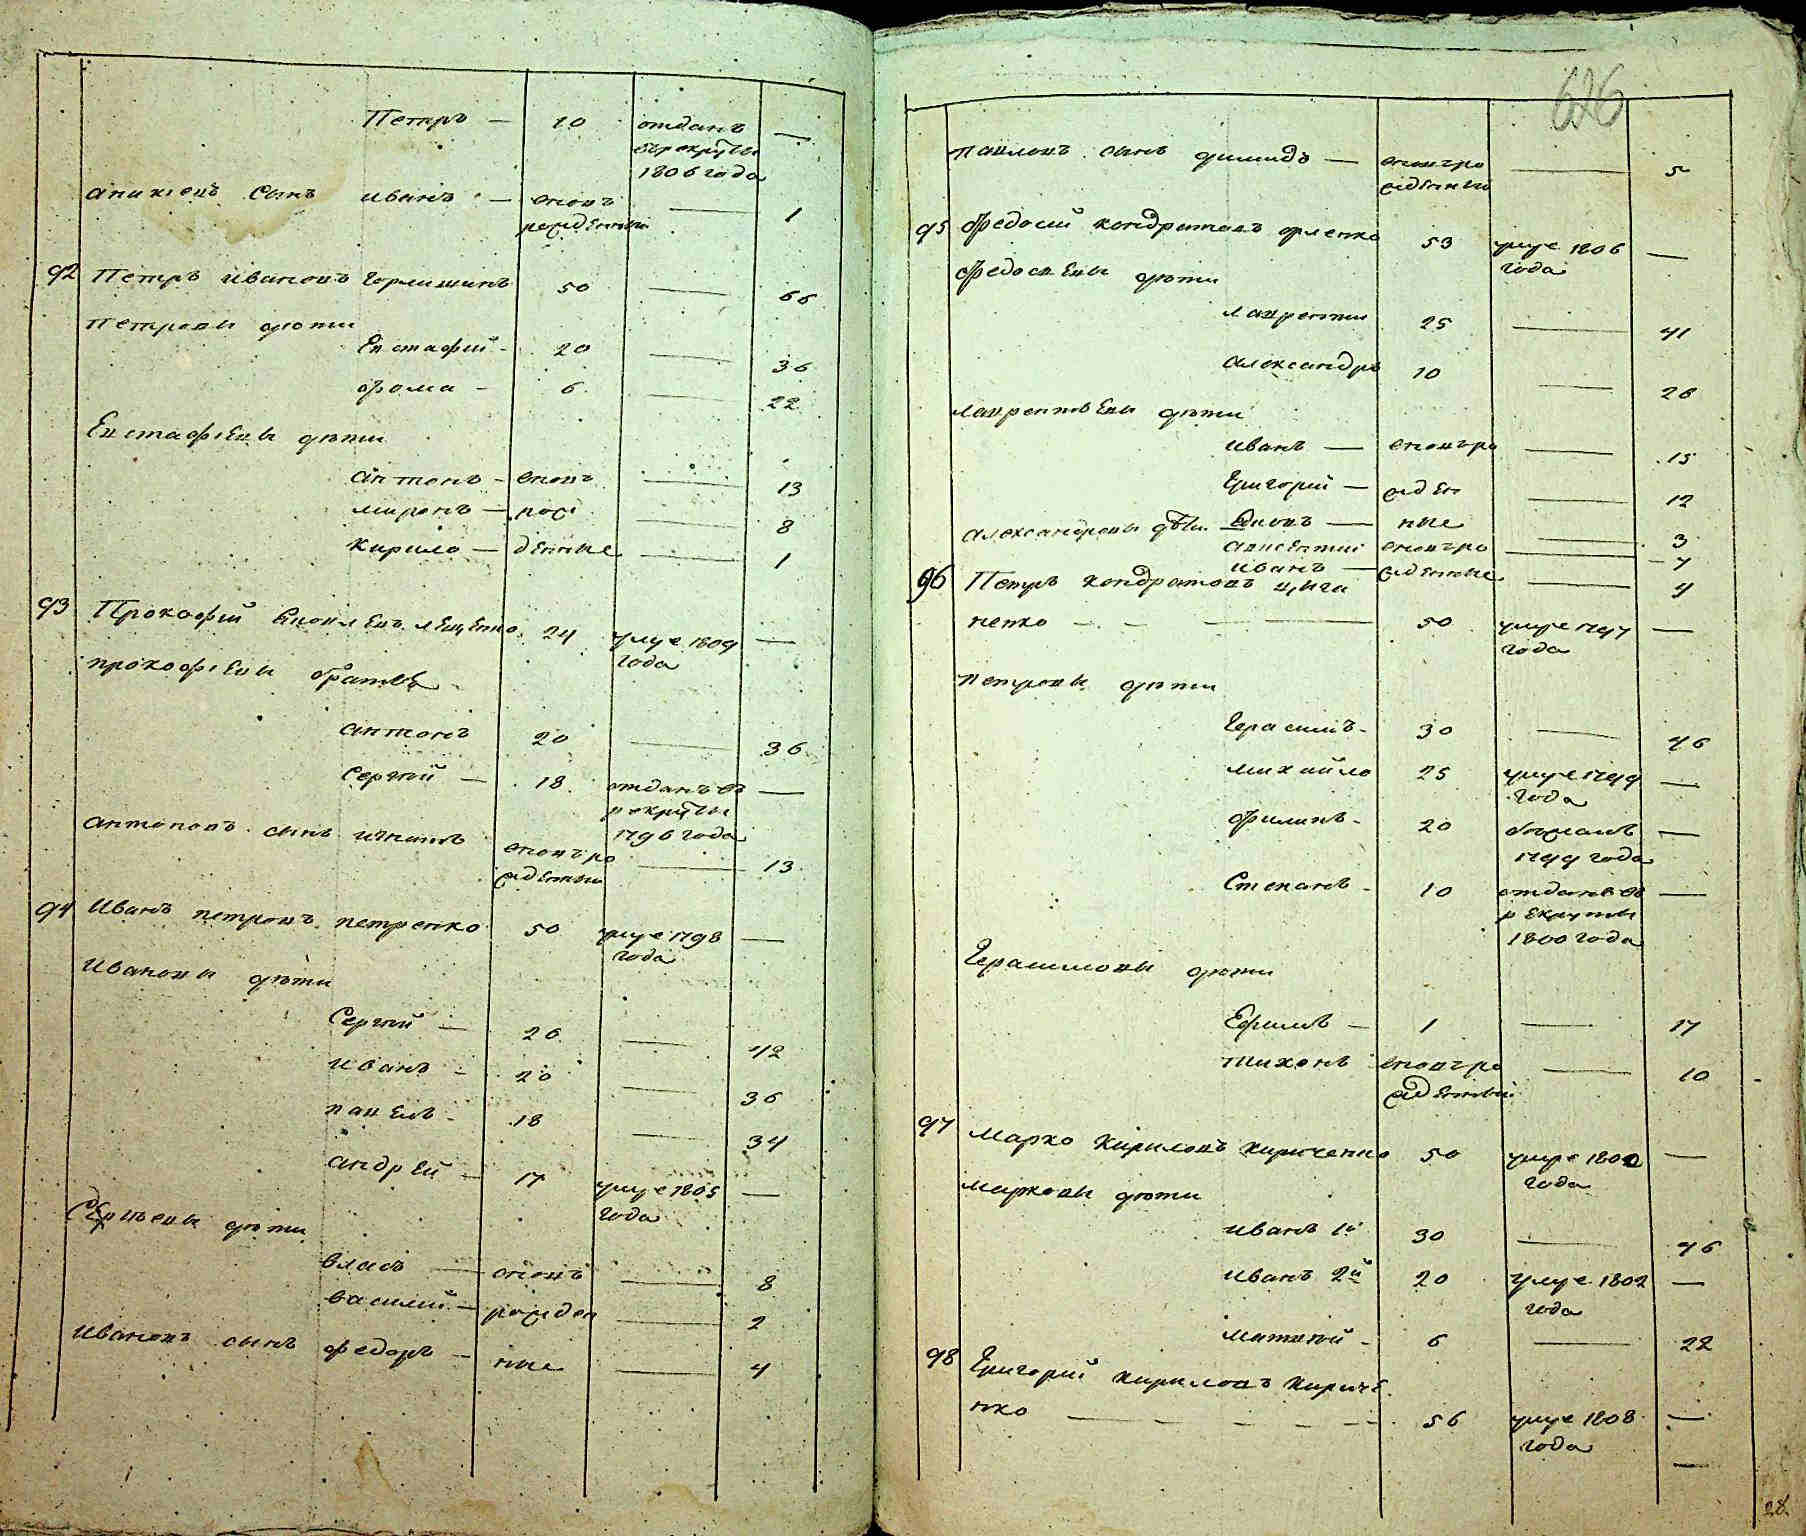 Петръ — 10 отданъ —
въ рекруты
1806 года
аникіевъ Сынъ иванъ — вновь — 1
рожденный
92 Петръ ивановъ Горлишинъ 50 — 66
петровы дѣти
Евстафій - 20 — 36
фома - 6 — 22
Евстафіевы дѣти
антонъ - вновь — 13
миронъ — рож — 8
кирило — денные — 1
93 Прокофій Яковлевъ лещенко 24 умре 1809 —
года
прокофіевы братья
антонъ 20 — 36
Сергѣй — 18 отданъ въ —
рекруты
1796 года
антоновъ сынъ игнатъ вновь ро — 13
жденный
94 Иванъ петровъ петренко 50 умре 1798 —
года
Ивановы дѣти
Сергѣй — 26 — 42
иванъ - 20 — 36
павелъ - 18 — 34
андрей - 17 умре 1805 —
года
Сергѣевы дѣти
власъ — вновь — 8
василий — рожден — 2
ивановъ сынъ федоръ — ные — 4
626
павловъ сынъ димидъ — вновь ро — 5
жденный
95 Федосий кондратовъ орленко 53 умре 1806 —
года
федосиевы дѣти
лаврентий 25 — 41
александръ 10 — 26
лаврентьевы дѣти
иванъ — вновь ро — 15
Григорий — жден — 12
Яковъ — ные — 3
александровы дѣти
авксентий вновь ро — 7
иванъ — жденные — 4
96 Петръ кондратовъ цига
ненко — 50 умре 1797 —
года
петровы дѣти
Герасимъ - 30 — 46
михайло 25 умре 1799 —
года
филипъ - 20 бѣжалъ —
1799 года
Степанъ - 10 отданъ въ —
рекруты
1800 года
Герасимовы дѣти
Ефимъ — 1 — 17
тихонъ вновь ро — 10
жденный
97 марко кириловъ кириченко 50 умре 1800 —
года
марковы дѣти
иванъ 1й 30 — 46
иванъ 2й 20 умре 1802 —
года
матвѣй - 6 — 22
98 Григорий кириловъ кириче
нко — 56 умре 1808 —
года
—
28